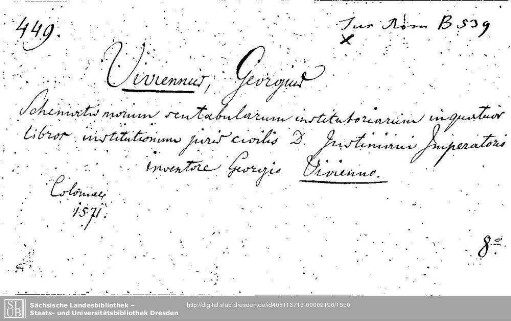 449.
Jus Rom B 539
x
Viviennus, Georgius
Schematismorum seu tabularum institutoriarum in quatuor
libros institutionum juris civilis D. Justiniani Imperatoris
inventore Georgio Vivienno.
Coloniae
1571.
8.°
SLUB
Sächsische Landesbibliothek –
Staats- und Universitätsbibliothek Dresden